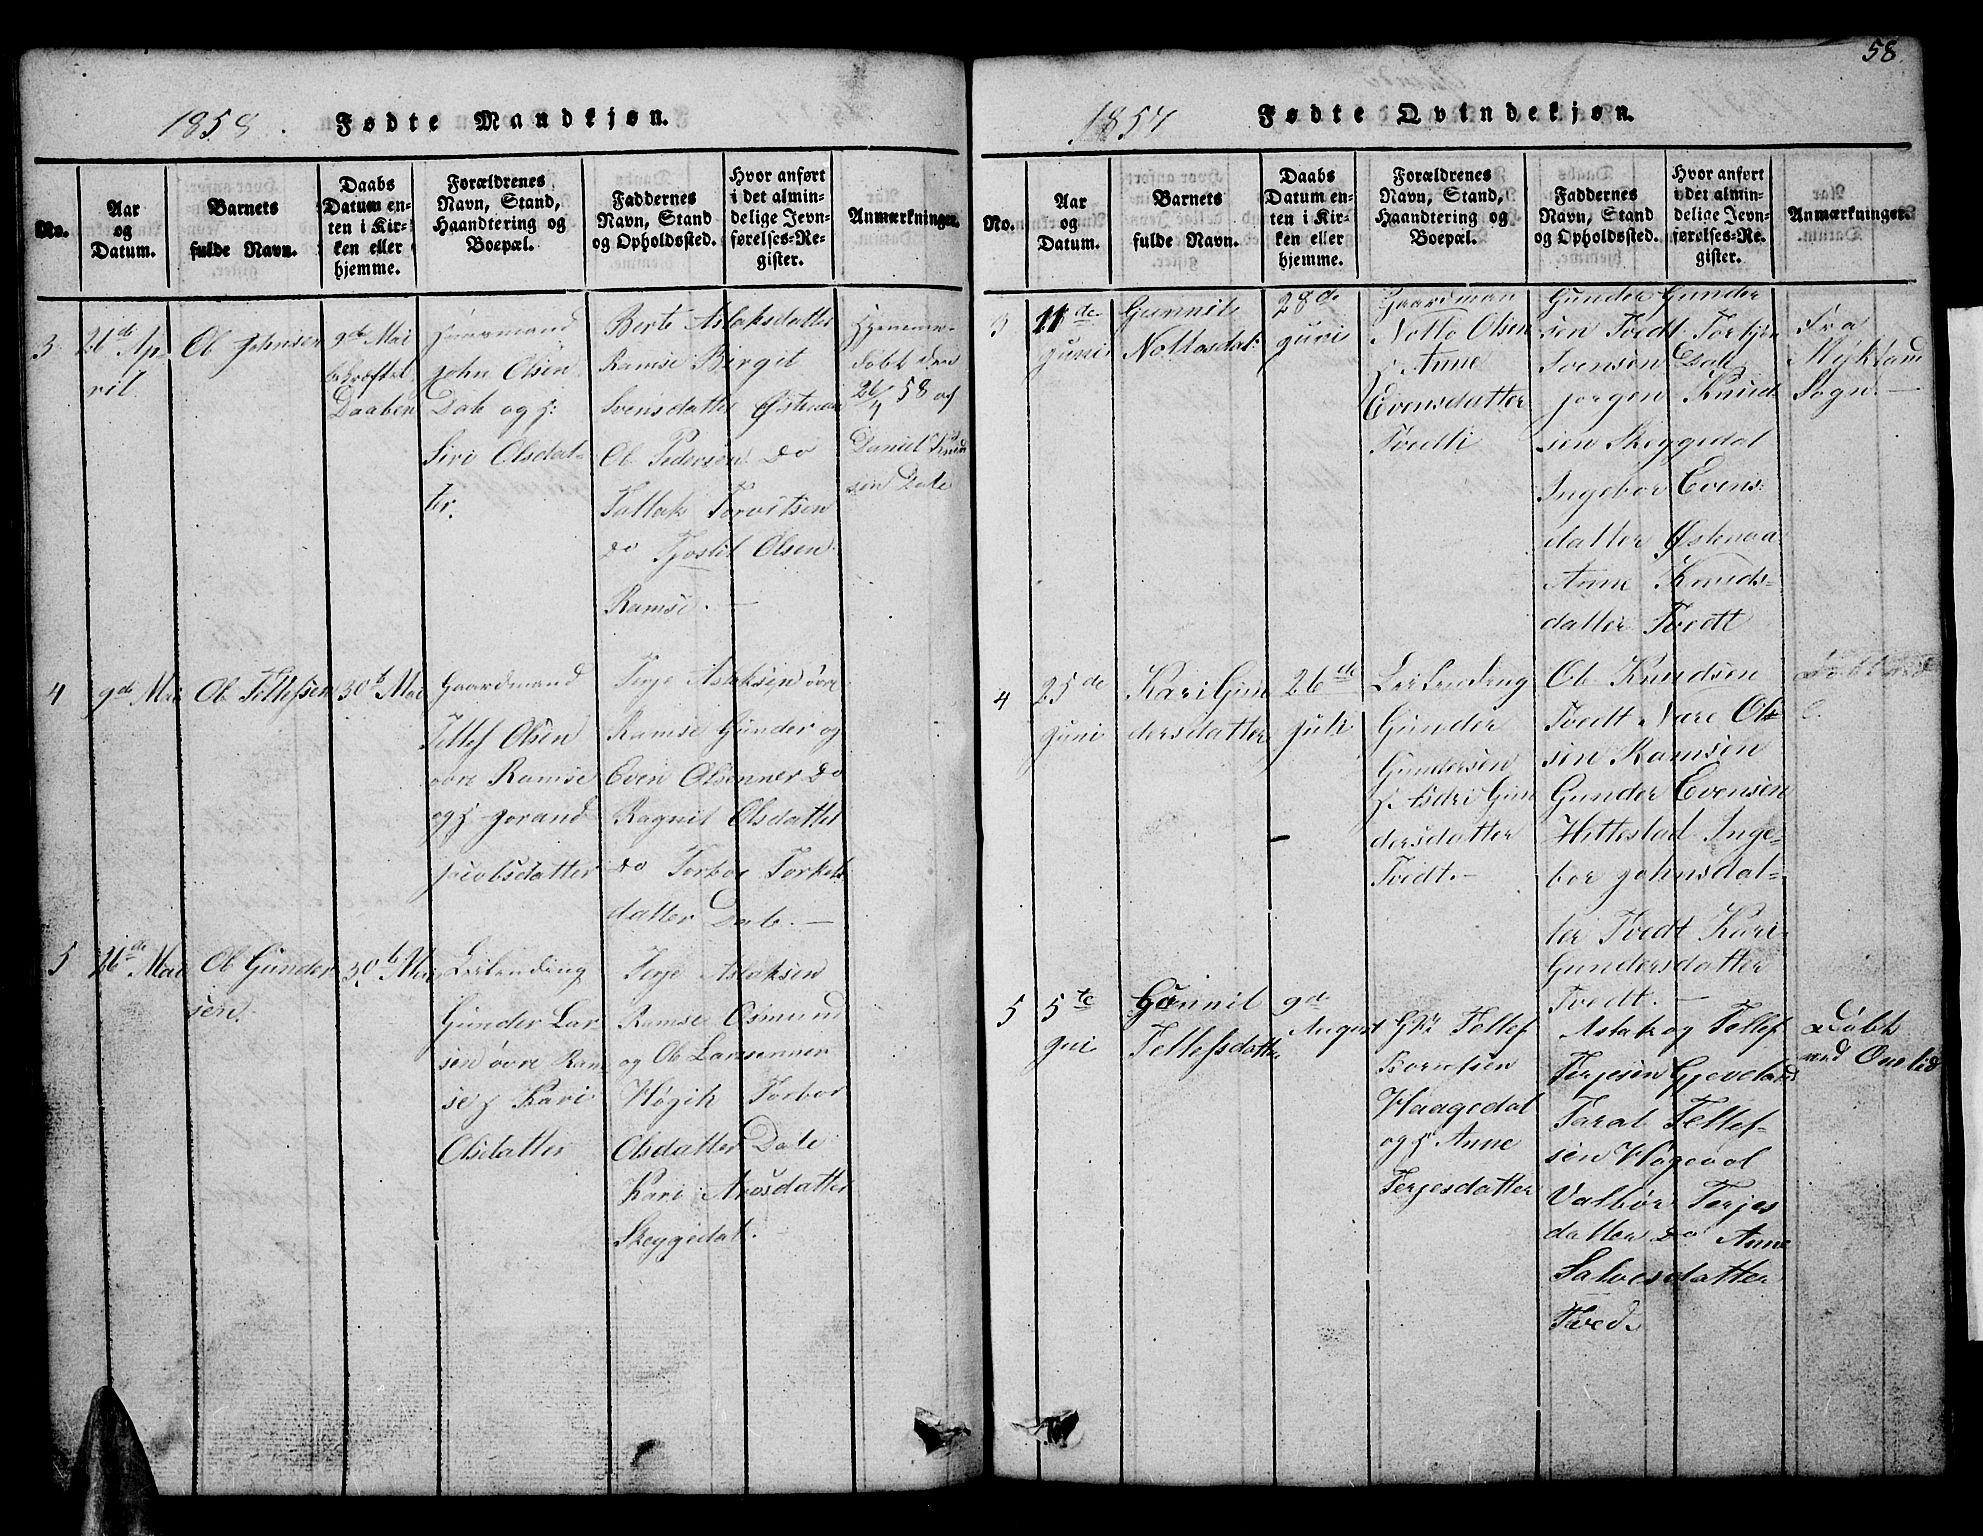 58
1858. Fødte Mandkjøn.
No.
Aar og Datum.
Barnets fulde Navn.
Daabs Datum enten i Kirken eller hjemme.
Forældrenes Navn, Stand, Haandtering og Boepæl.
Faddernes Navn, Stand og Opholdssted.
Hvor anført i det almindelige Jevnførelses-Register.
Anmærkninger.
3
26de April
Ole Johnsen
9de Mai
Daaben
Gaarmand
John Olsen
Dale og H:
Siri Olsdatter.
Berte Aslaksdatter
Ramse Birgit
Svensdatter Østenaa
Ole Pedersen do
Tallak Torvitsen
do Tjostel Olsen
Ramse. —
Hjemme-
døbt den
26/4 58 af
Daniel Knud
sen Dale
4
9de Mai
Ole Tellefsen
30te Mai
Gaardmand
Tellef Olsen
øvre Ramse
og H Jorand
Jacobsdatter
Terje Aslaksen øvre
Ramse Gunder og
Even Olsenner do
Ragnil Olsdatter
do Torbor Torkels
datter Dale. —
5
26de Mai
Ole Gunder
sen.
30te Mai
Leilending
Gunder Lar
sen øvre Ram
se H Kari
Olsdatter
Terje Aslaksen
Ramse Osmund
og Ole Larsenner
Høgik Torbor
Olsdatter Dale
Kari Arosdatter
Skeggedal.
1857 Fødte Qvindekjøn.
No.
Aar og Datum.
Barnets fulde Navn.
Daabs Datum enten i Kirken eller hjemme.
Forældrenes Navn, Stand, Haandtering og Boepæl.
Faddernes Navn, Stand og Opholdssted.
Hvor anført i det almindelige Jevnførelses-Register.
Anmærkninger.
3
11de
Juni
Gunnil
Nottosdat:
28de
Juni
Gaardman
Notto Olsen
H Anne
Evensdatter
Tvedt
Gunder Gunder
sen Tvedt Torbjøn
Svensen Dale
Jørgen Knud
sen Skeggedal
Ingebor Evens:
datter Østenaa
Anne Knuds-
datter Tvedt
Fra
Mykland
Sogn. —
4
25de
Juni
Kari Gun
dersdatter
26de
Juli
Leilending
Gunder
Gundersen
H. Asdri Gun
dersdatter
Tvedt. —
Ole Knudsen
Tvedt Nere Ol-
sen Ramsen
Gunder Evensen
Hettestad Inge-
bor Johnsdat-
ter Tvedt Kari
Gundersdatter
Tvedt. —
5
5te
Jui
Gunnil
Tellefsdatter
9de
August
Tellef
Haagedal
og H Anne
Terjesdatter
Aslak og Tellef
Terjesen Gjeveland
Taral Tellef-
sen Høgevol
Valbor Terjes
datter do Anne
Salvesdatter
Tved.
Døbt
ved Omlid